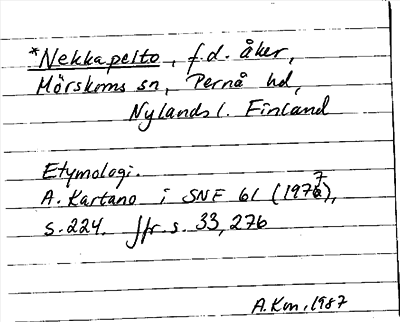 *Nekkapelto, f.d. åker,
Mörskoms sn, Pernå hd,
Nylands l. Finland
Etymologi.
A. Kartano i SNF 61 (1977),
s.224. Jfr. s. 33, 276
A.Km, 1987